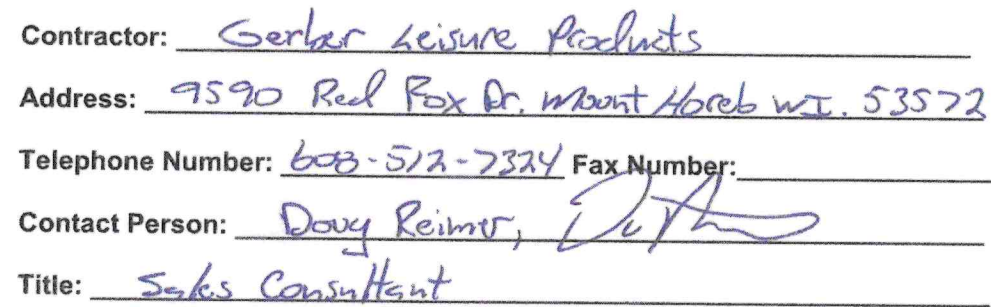 Contractor: Gerber Leisure Products
Address: 9590 Red Fox Dr. Mount Horeb WI. 53572
Telephone Number: 608-512-7324 Fax Number:
Contact Person: Doug Reimer,
Title: Sales Consultant